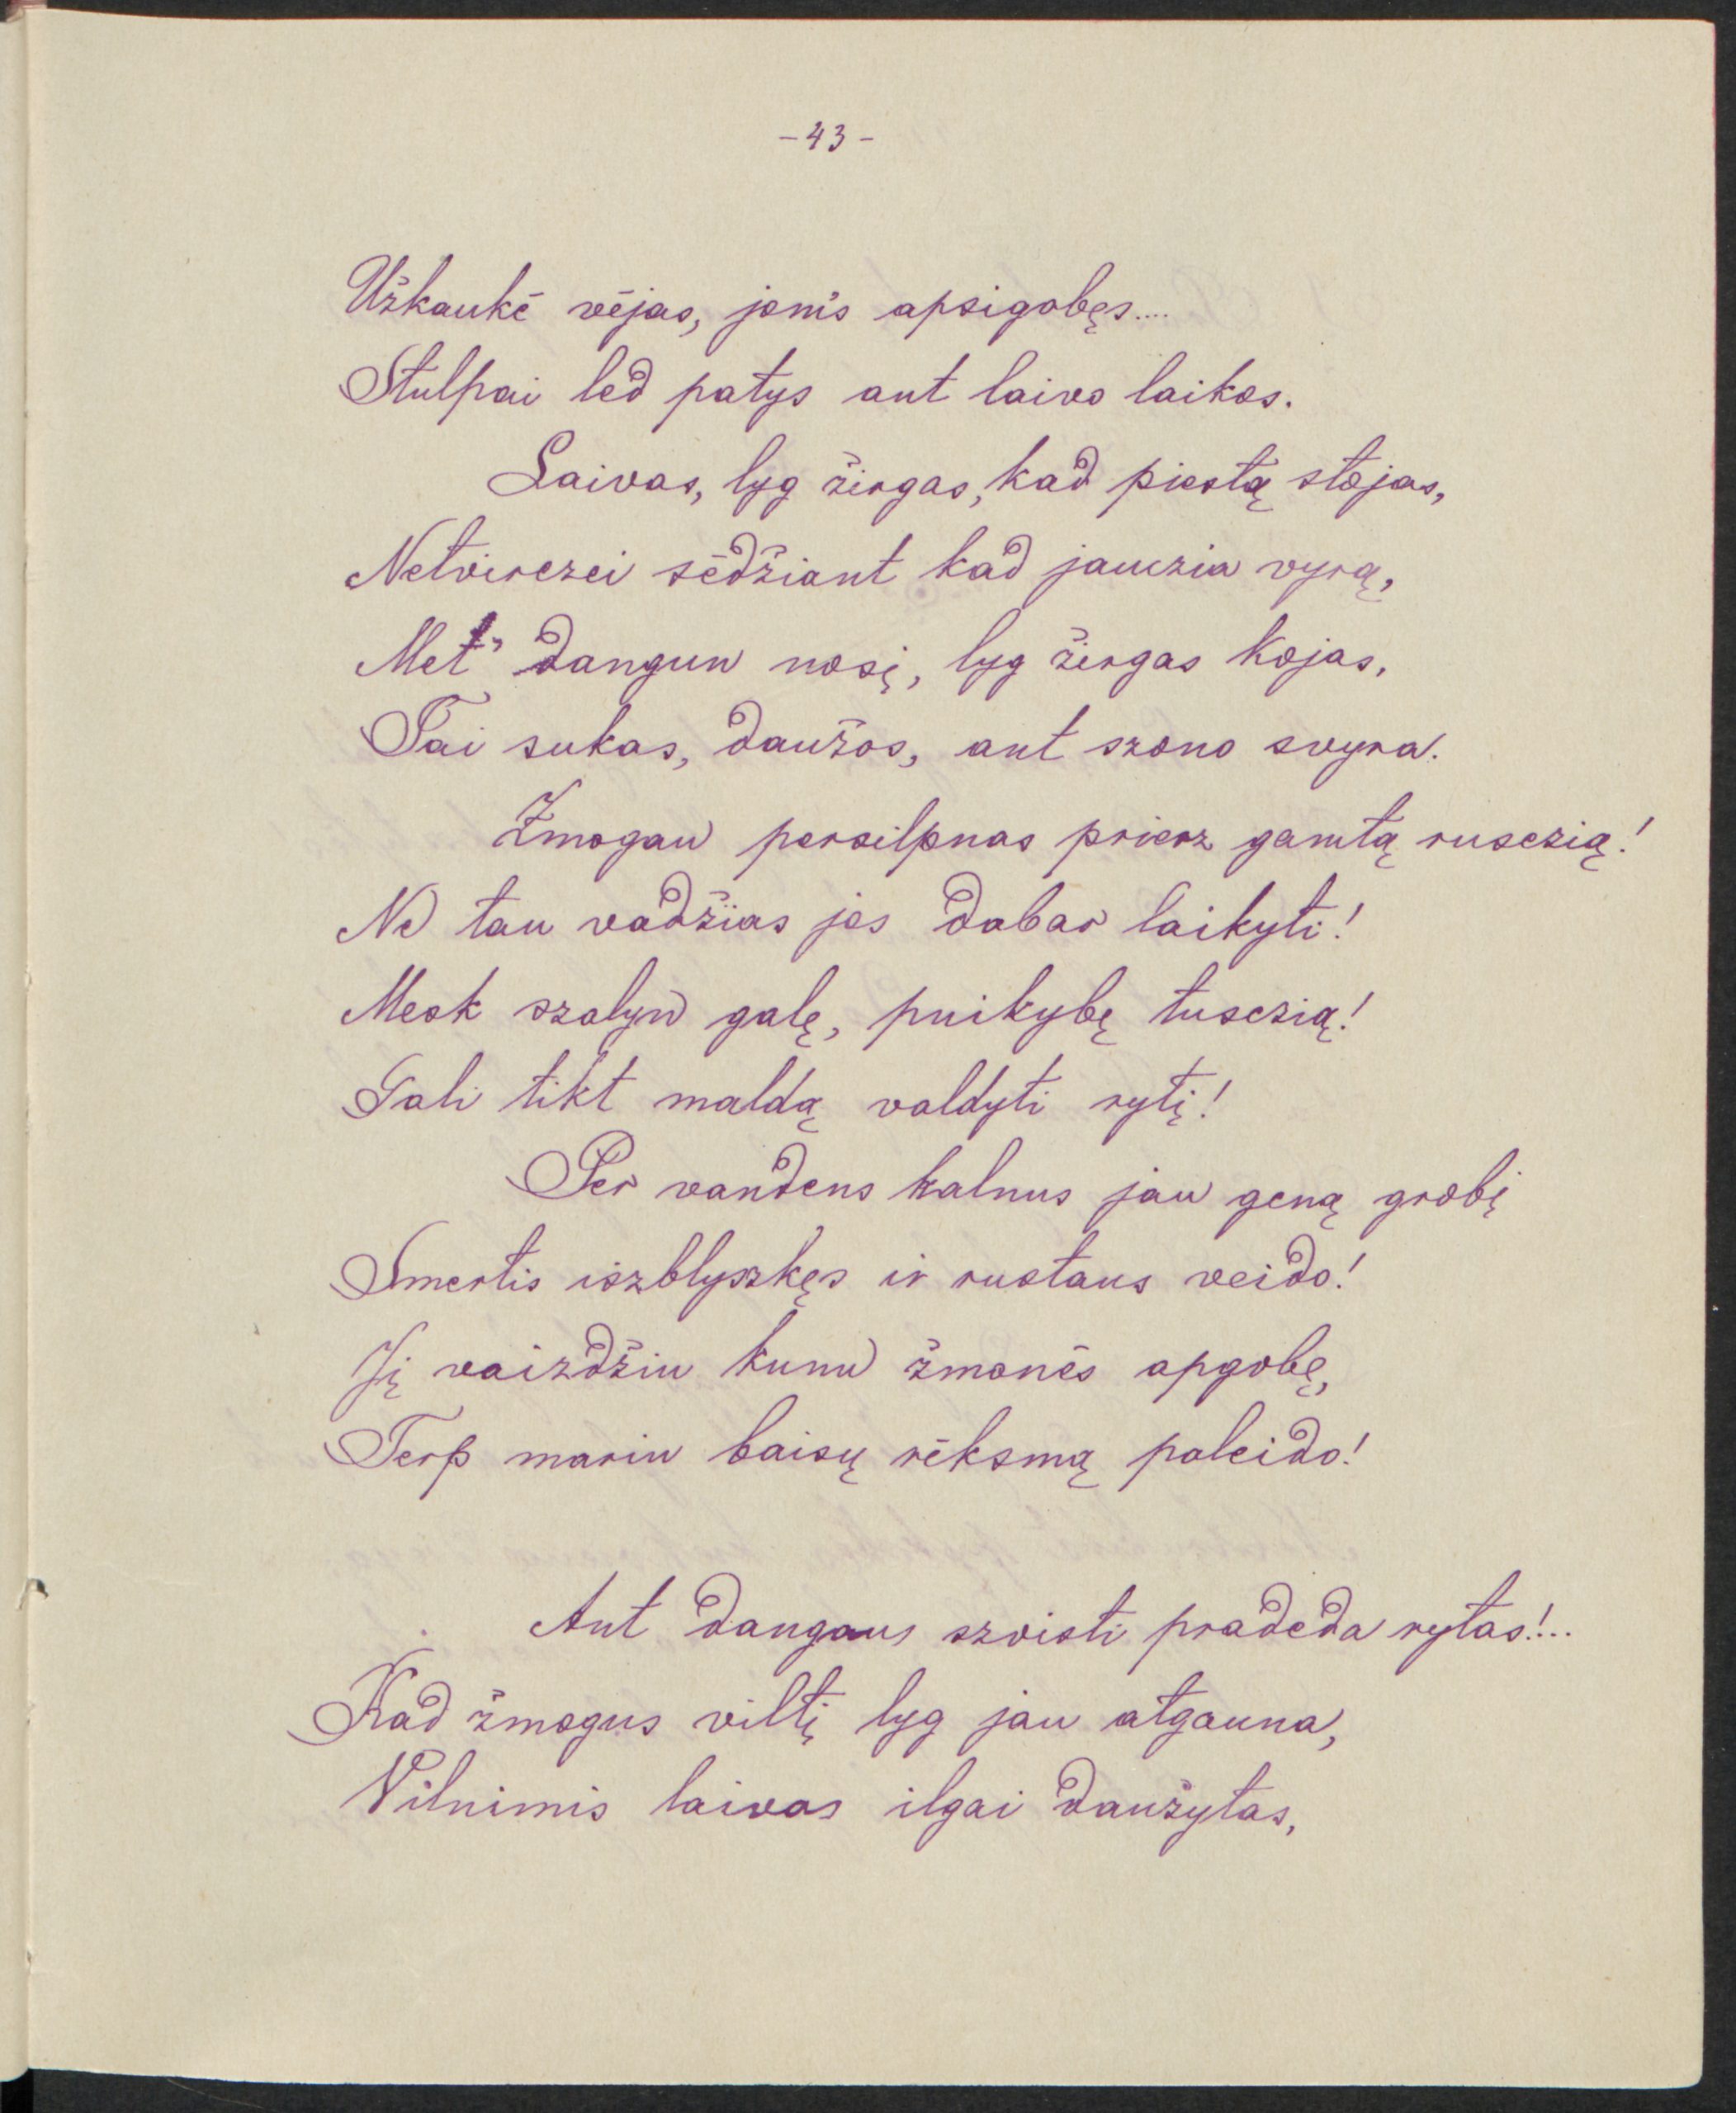 - 43 -
Užkaukė vėjas, jomis apsigobęs....
Stulpai led patys ant laivo laikos.
Laivas, lyg žirgas, kad piestą stojas,
Netvirczei sėdžiant kad jauczia vyrą,
Met' dangun nosį, lyg žirgas kojas,
Tai sukas, daužos, ant szono svyra.
Žmogau persilpnas priesz gamtą rusczią!
Ne tau vadžias jos dabar laikyti!
Mesk szalyn galę, puikybę tusczią!
Gali tikt maldą valdyti rytį!
Per vandens kalnus jau geną grobį
Smertis iszblyszkęs ir rustaus veido!
Jį vaizdžiu kunu žmonės apgobę,
Terp mariu baisų rėksmą paleido!
Ant dangaus szvisti pradeda rytas!..
Kad žmogus viltį lyg jau atgauna,
Vilnimis laivas ilgai daužytas,